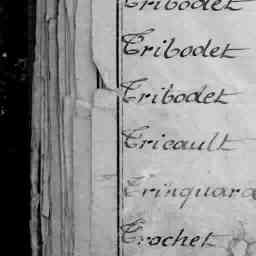 Tribodet
Tribodet
Tribodet
Tricault
Trinquard
Trochet